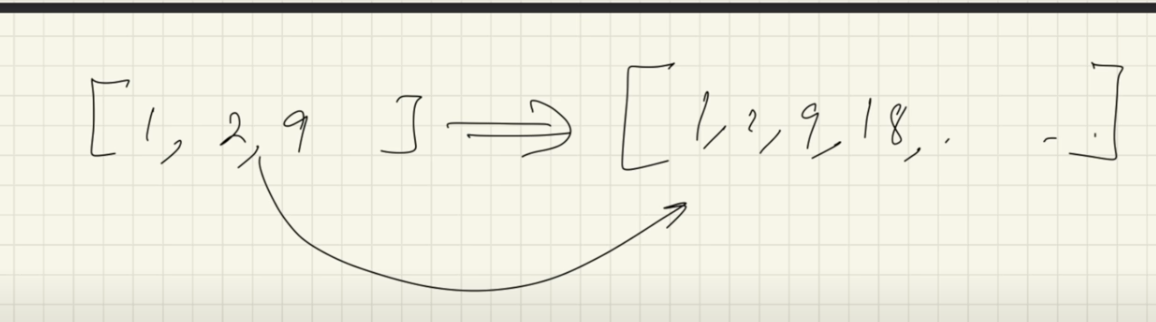 [1, 2, 9 ] ⟹ [1, 2, 9, 18, . . .]